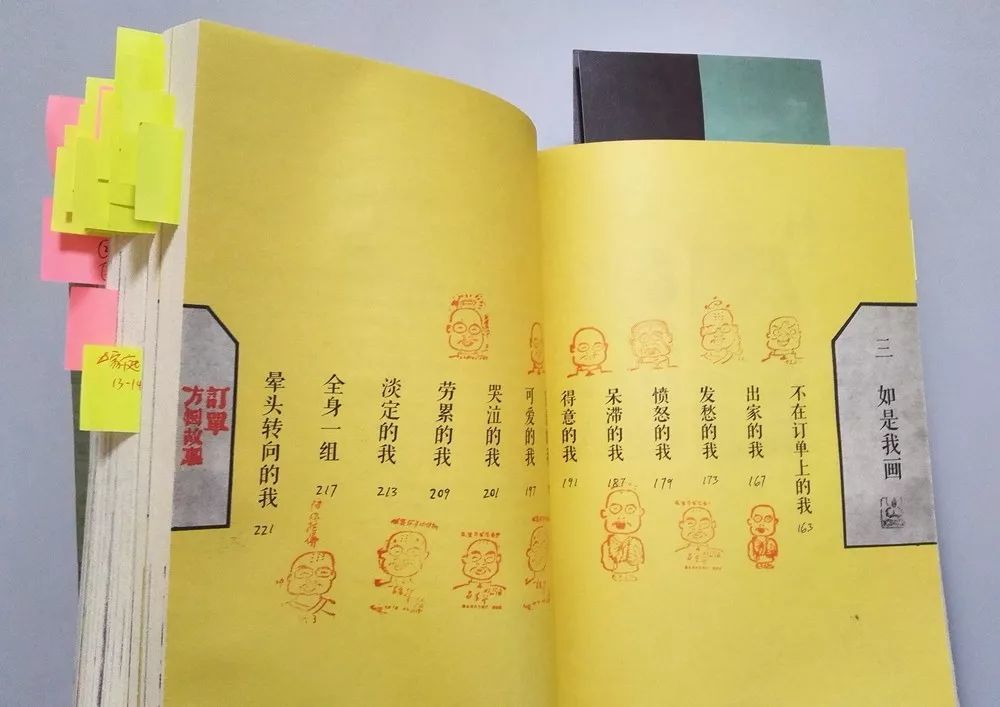 三 如是我画
不在订单上的我
163
出家的我
167
发愁的我
173
愤怒的我
179
呆滞的我
187
得意的我
191
可爱的我
197
哭泣的我
201
劳累的我
209
淡定的我
213
全身一组
217
晕头转向的我
221
訂單
方圆故事
家庭
13-14